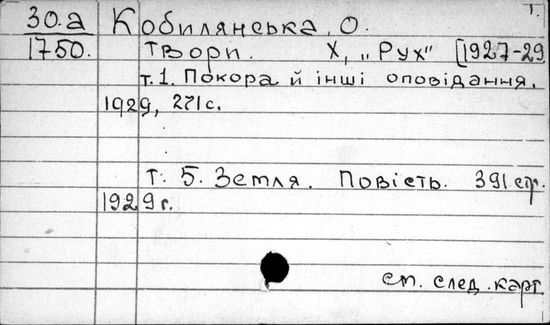 30.а Кобилянська, О. 1.
1750. Твори. Х, „Рух" [1927-29
т.1. Покора й інші оповідання.
1929, 271 с.
т. 5. Земля. Повість. 391 стр.
1929 г.
см. след. карт.